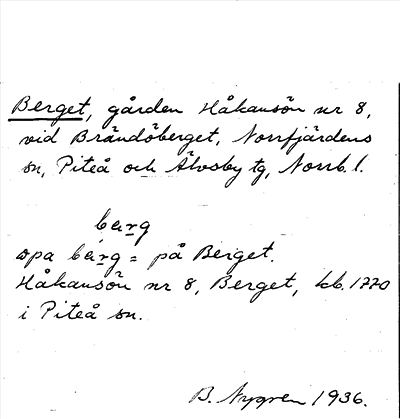 Berget, gården Håkansön nr 8,
vid Brändöberget, Norrfjärdens
sn, Piteå och Älvsby tg, Norrb. l.
bærg
opa bærg = på Berget.
Håkansön nr 8, Berget, kb. 1770
i Piteå sn.
B. Nygren 1936.